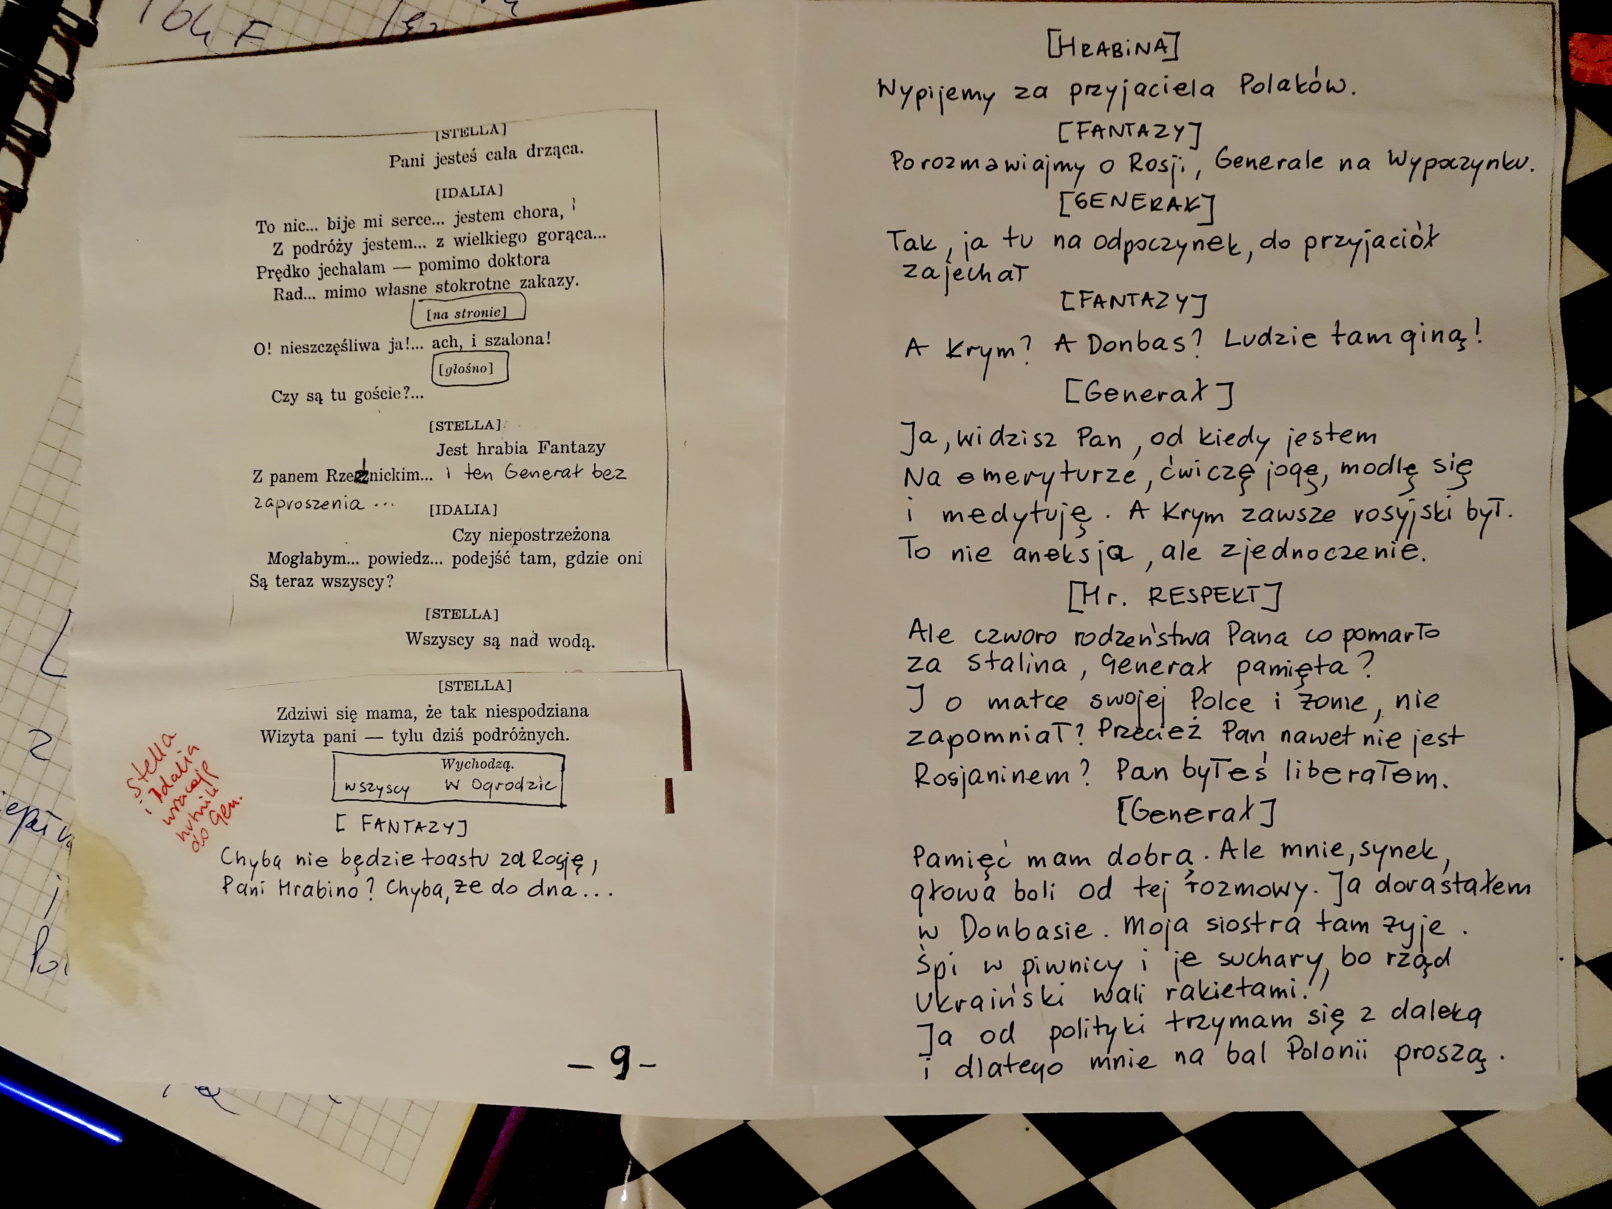 [STELLA]
Pani jesteś cała drżąca.
[IDALIA]
To nic... bije mi serce... jestem chora,
Z podróży jestem... z wielkiego gorąca...
Prędko jechałam — pomimo doktora
Rad... mimo własne stokrotne zakazy.
[na stronie]
O! nieszczęśliwa ja!... ach, i szalona!
[głośno]
Czy są tu goście?...
[STELLA]
Jest hrabia Fantazy
Z panem Rzeźnickim... i ten Generał bez
zaproszenia ...
[IDALIA]
Czy niepostrzeżona
Mogłabym... powiedz... podejść tam, gdzie oni
Są teraz wszyscy?
[STELLA]
Wszyscy są nad wodą.
[STELLA]
Zdziwi się mama, że tak niespodziana
Wizyta pani — tylu dziś podróżnych.
Wychodzą.
wszyscy w Ogrodzie
Stella
i Idalia
wracają
do Gen.
[FANTAZY]
Chyba nie będzie toastu za Rosję,
Pani Hrabino? Chyba, że do dna...
-9-
[HRABINA]
Wypijemy za przyjaciela Polaków.
[FANTAZY]
Porozmawiajmy o Rosji, Generale na Wypoczynku.
[GENERAŁ]
Tak, ja tu na odpoczynek, do przyjaciół
zajechał
[FANTAZY]
A Krym? A Donbas? Ludzie tam giną!
[Generał]
Ja, widzisz Pan, od kiedy jestem
Na emeryturze, ćwiczę jogę, modlę się
i medytuję. A Krym zawsze rosyjski był.
To nie aneksja, ale zjednoczenie.
[Hr. RESPEKT]
Ale czworo rodzeństwa Pana co pomarło
za Stalina, Generał pamięta?
I o matce swojej Polce i żonie, nie
zapomniał? Przecież Pan nawet nie jest
Rosjaninem? Pan byłeś liberałem.
[Generał]
Pamięć mam dobrą. Ale mnie, synek,
głowa boli od tej rozmowy. Ja dorastałem
w Donbasie. Moja siostra tam żyje.
Śpi w piwnicy i je suchary, bo rząd
Ukraiński wali rakietami!
Ja od polityki trzymam się z daleka
i dlatego mnie na bal Polonii proszą.